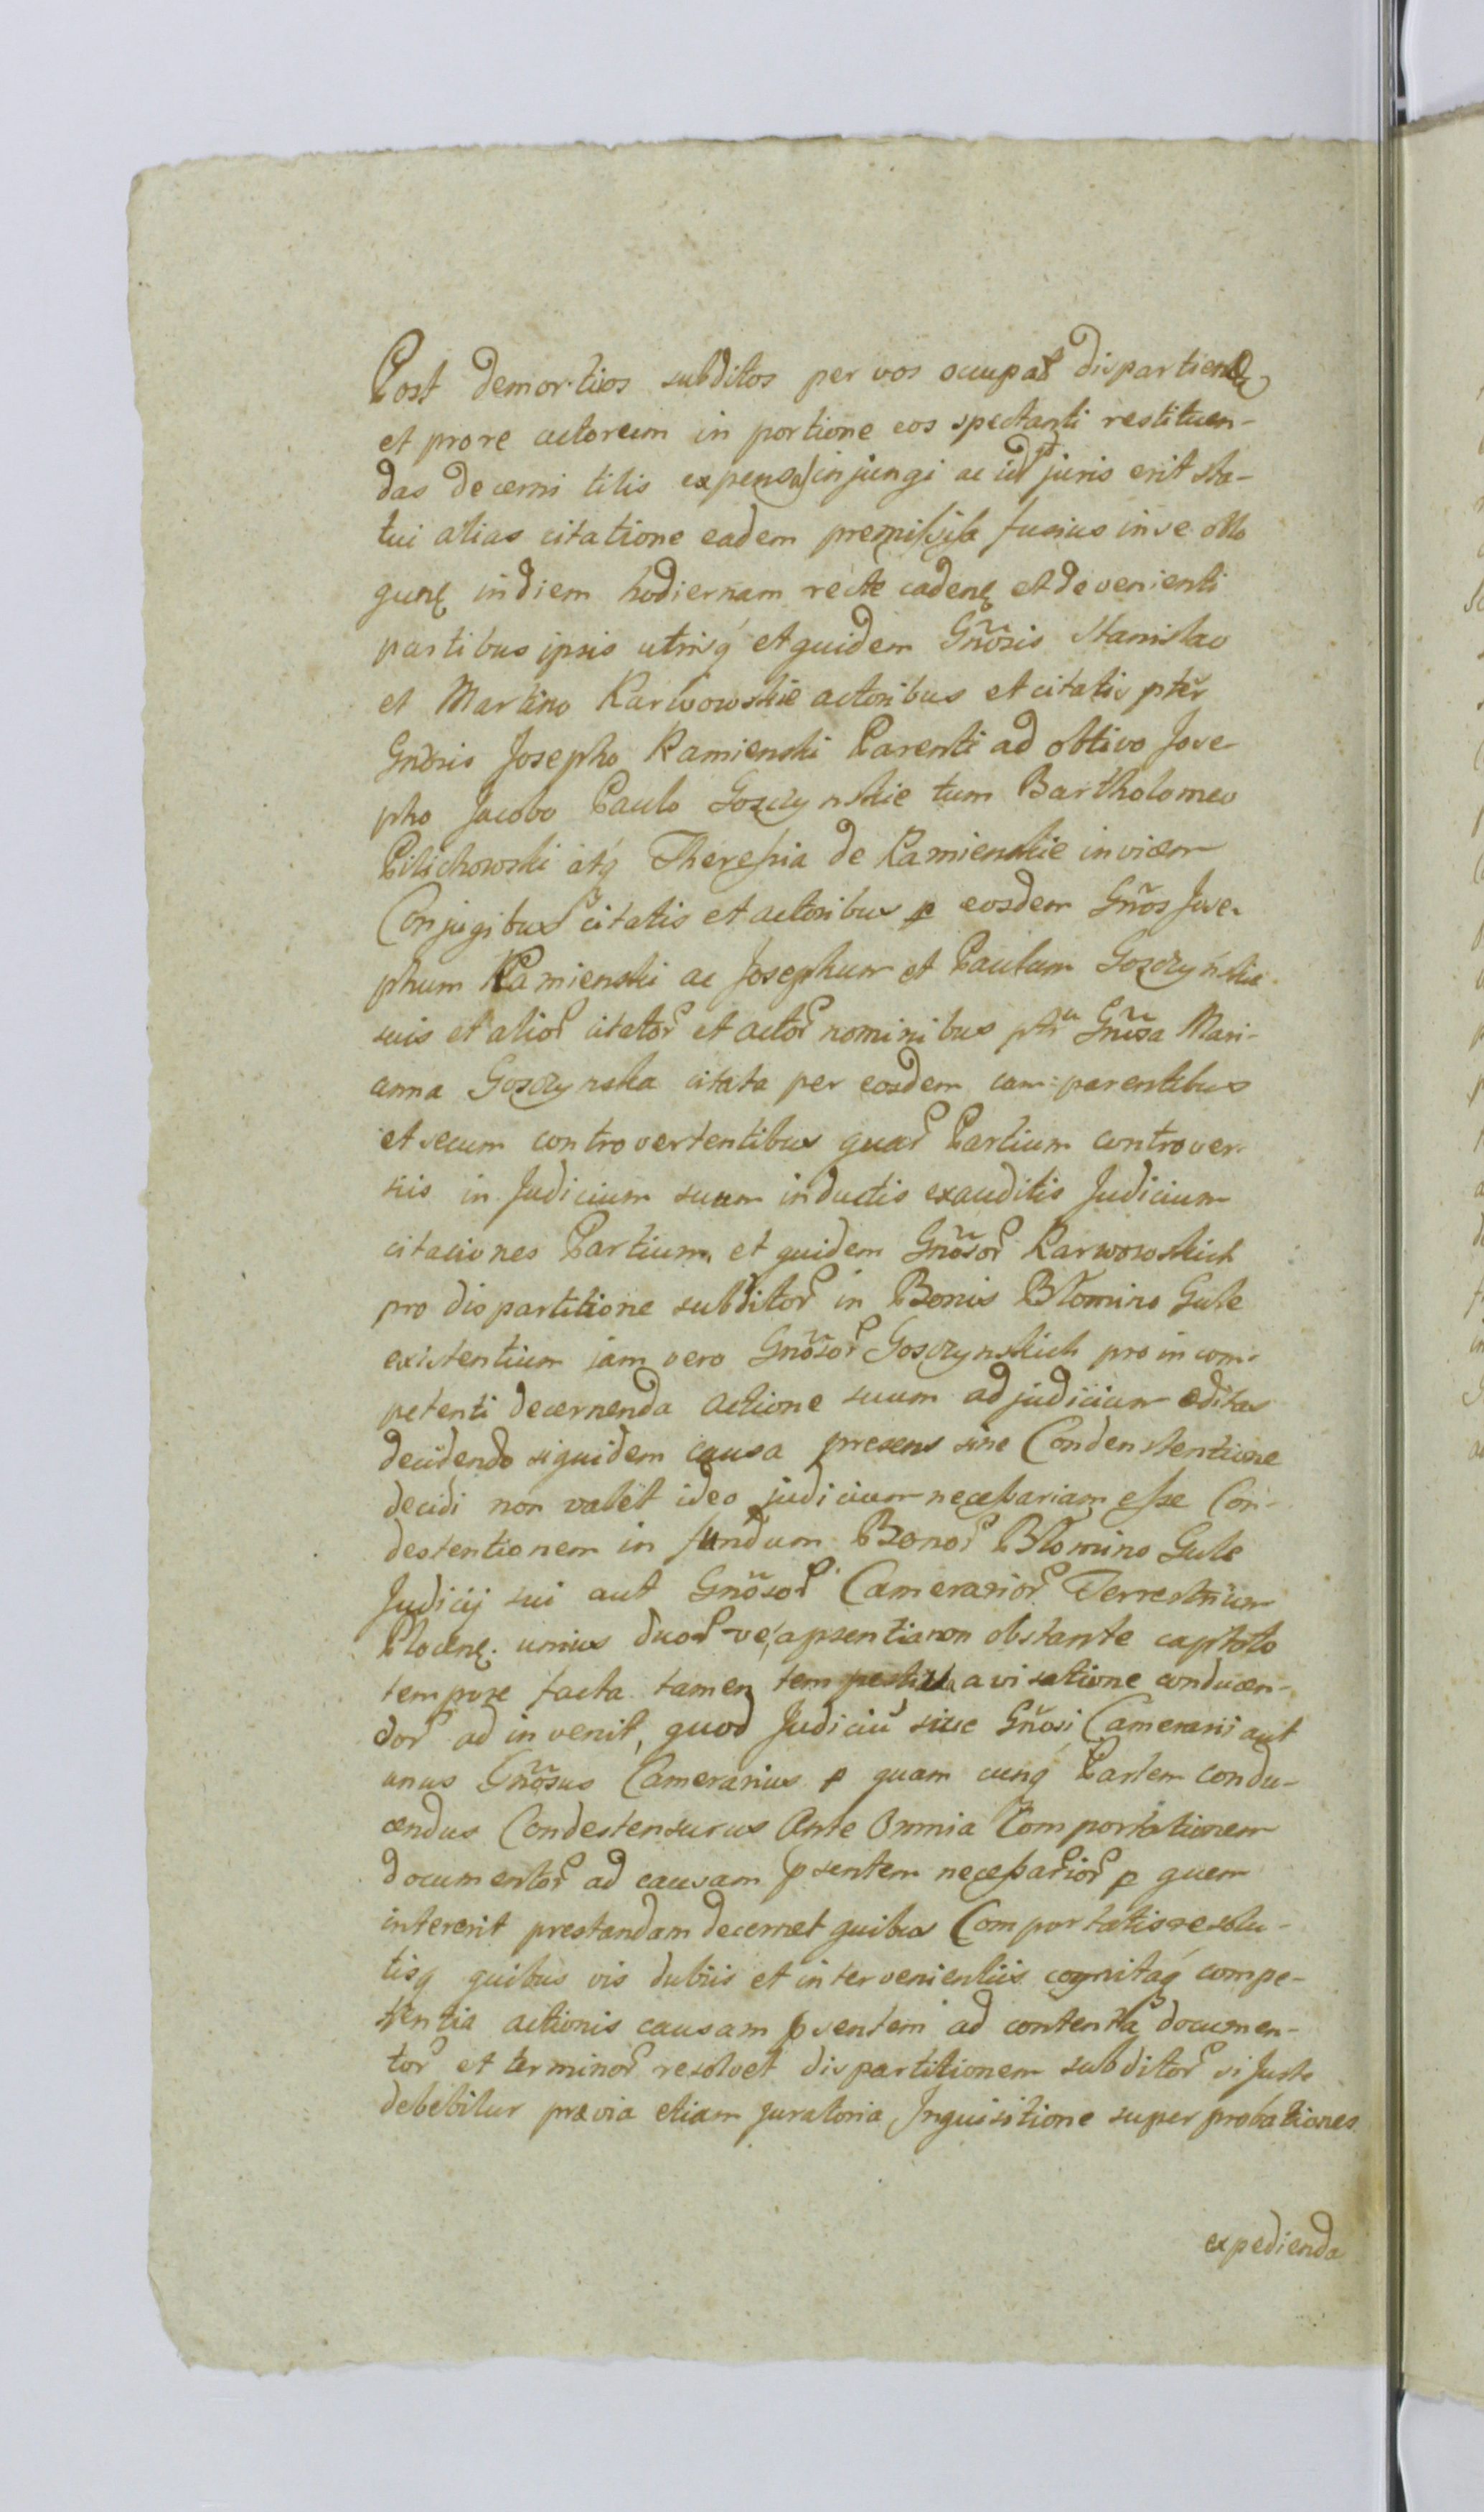 Post demortuos subditos per vos occupat dispartiendę
et pro re actoreum in portione eos spectanti restituen-
das decerni litis expensas injungi ac id qd juris erit sta-
tui alias citatione eadem premissis fusius in se
gunę in diem hodiernam recte cadenę et devenienti
partibus ipsis utrisq́ et quidem Gnosis Stanislao
et Martino Karwowskie actoribus et citatis pter
Gnosis Josepho Kamienski Parenti ad obtivo Jose-
pho Jacobo Paulo Goszczynskie tum Bartholomeo
Pilichowski atq́ Theresia de Kamienskie invicem
Conjugibus citatis et actoribus p eosdem Gnos Jose-
phum Kamienski ac Josephum et Paulum Goszczyńskie
suis et alior citator et actor nominibus ptr Gnosa Mari-
anna Goszczynska citata per eosdem com-parentibus
et secum controvertentibus quar Partium controver-
siis in Judicium suum inductis exauditis Judicium
citaciones Partium, et quidem Gnosor Karwowskich
pro dispartitione subditor in Bonis Blomino Gule
existentium iam vero Gnosor Goszczynskich pro incom-
petenti decernenda actione suum ad judicium editas
decidendo siquidem causa presens sine Condenstentione
decidi non valet ideo judicium necessariam esse Con-
destentionem in fundum Bonor Blomino Gule
Judicij sui aut Gnosor Camerarior Terrestrium
Plocenę. unius duor ve, apsentia non obstante captato
tempore facta tamen tempestiva avisatione conducen-
dor ad invenit, quod Judiciu sive Gnosi Camerarii aut
unus Gnosus Camerarius p quam cunq́ Partem condu-
cendus Condestensurus Ante Omnia Comportationem
documentor ad causam psentem necessarior p quem
intererit prestandam decernet quibus Comportatis resolu-
tisq quibus vis dubiis et intervenientiis cognitaq́ compe-
tentia actionis causam psentem ad contenta documen-
tor et terminor resolvet dispartitionem subditor si juste
debebitur prævia etiam juratoria Inquisitione super probationes
expedienda